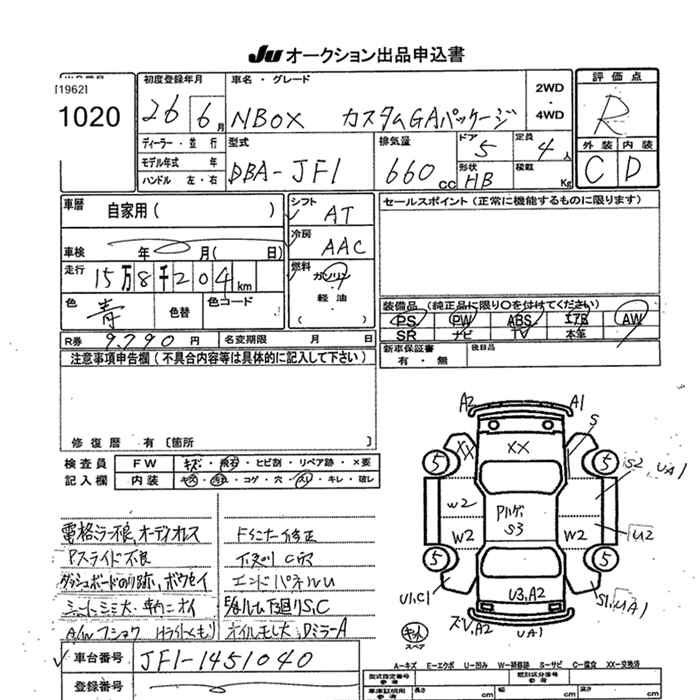 JU オークション出品申込書
[1962]
1020
初度登録年月
26 6月
車名・グレード
NBOX カスタムGAパッケージ
2WD
・
4WD
評価点
R
ディーラー・並行
モデル年式 年
ハンドル 左・右
型式
DBA-JF1
排気量
660cc
ドア
5
形状
HB
定員
4人
積載
Kg
外装 内装
C D
車歴
自家用( )
シフト
AT
セールスポイント(正常に機能するものに限ります)
車検 年 月( 日)
冷房
AAC
走行
15万8千204km
燃料
ガソリン
・
軽油
( )
色
青
色替
色コード
装備品(純正品に限り○を付けてください)
PS PW ABS エアB AW
SR ナビ TV 本革
R券 9,790円
名変期限 月 日
新車保証書
有・無
後日品
注意事項申告欄(不具合内容等は具体的に記入して下さい)
修復歴 有〔箇所 〕
検査員 FW キズ・飛石・ヒビ割・リペア跡・×要
記入欄 内装 キズ・汚れ・コゲ・穴・スリ・キレ・破レ
電格ミラー不良,オーディオレス
Pスライド不良
ダッシュボードのり跡,
シート,シミ大・車内ニオイ
Fコーナー修正
エンドパネルU
下廻りS,C
オイルモレ大,DミラーA
A2 A1
S
XX XX
5 5
S2, UA1
W2
Pルーフ
S3
W2 W2 U2
5 5
U1,C1
U3,A2
S1,UA1
UA1
スペア
A-キズ E-エクボ U-凹み W-補修跡 S-サビ C-腐食 XX-交換済
車台番号 JF1-1451040
登録番号
型式指定番号
参考
類別区分番号
参考
長さ cm 幅 cm 高さ cm